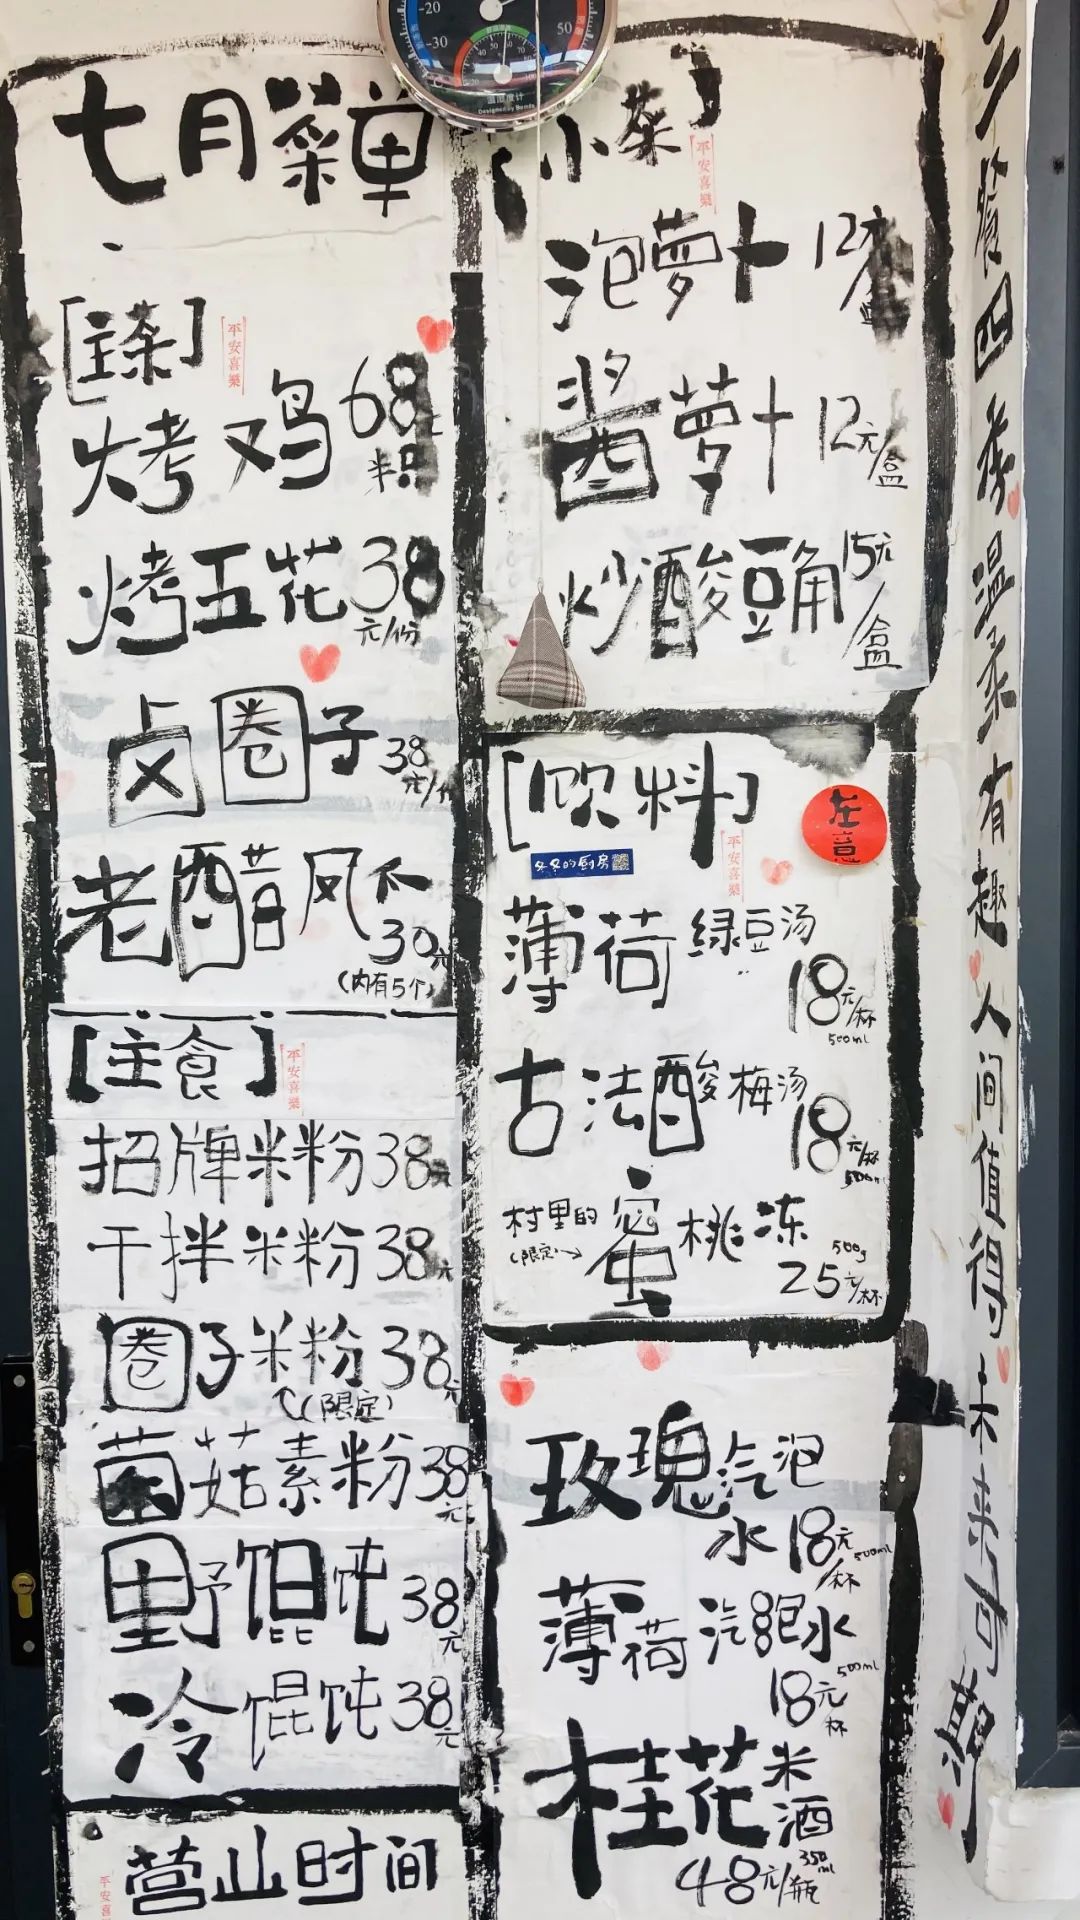 七月菜单
[主菜]
平安喜樂
烤鸡 68元
半只
烤五花 38
元/份
卤圈子 38
元/份
老醋凤爪
30元
(内有5个)
[主食]
平安喜樂
招牌米粉 38元
干拌米粉 38元
圈子米粉 38元
(限定)
菌菇素粉 38元
野馄饨 38元
冷馄饨 38元
营业时间
平安喜
[小菜]
平安喜樂
泡萝卜 12元/盒
酱萝卜 12元/盒
炒酸豆角 15元/盒
[饮料]
在意
冬冬的厨房
平安喜樂
薄荷绿豆汤
18元/杯
500ml
古法酸梅汤
18元/杯
500ml
村里的蜜桃冻
(限定)
500g
25元/杯
玫瑰汽泡
水 18元/杯
500ml
薄荷汽泡水
500ml
18元/杯
桂花米酒
350ml
48元/瓶
餐四季温柔有趣人间值得未来可期
-20
-30
50
温湿度计